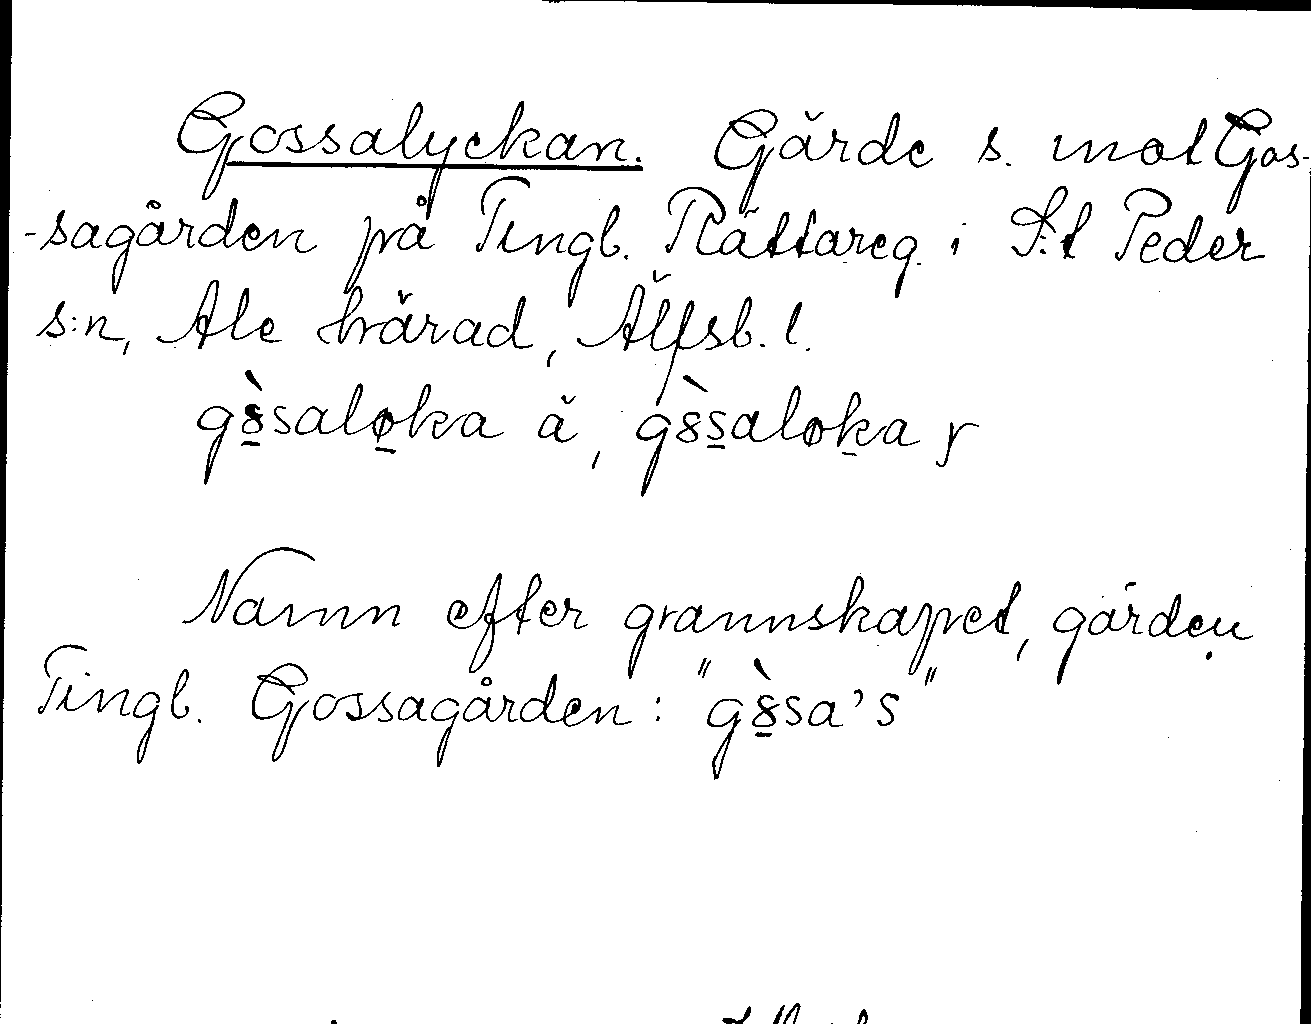 Gossalyckan. Gärde s. mot Gos-
-sagården på Tingb. Rättareg. i S:t Peder
s:n, Ale härad, Älfsb. l.
gs̀saloka ä, gs̀saloka y
Namn efter grannskapet, gården
Tingb. Gossagården: "gs̀sa's"